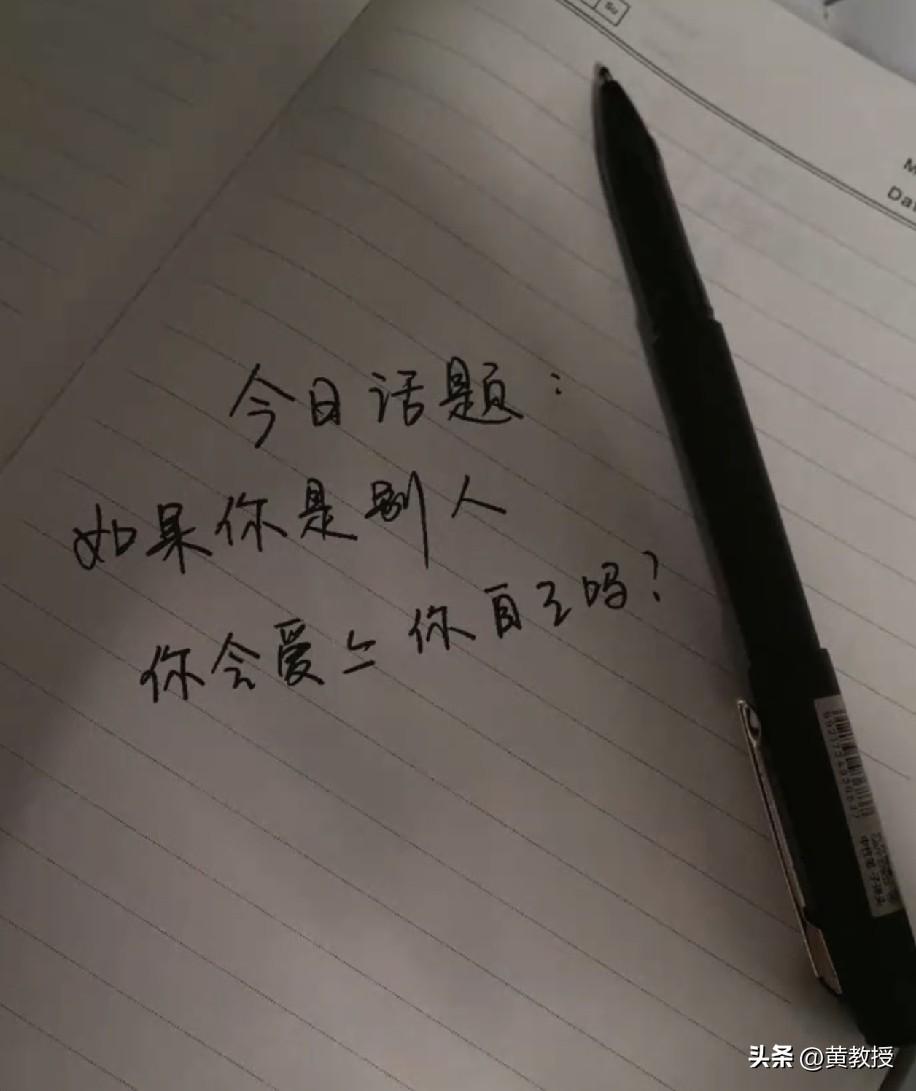 Su
M
Da
今日话题：
如果你是别人
你会爱上你自己吗？
头条 @黄教授